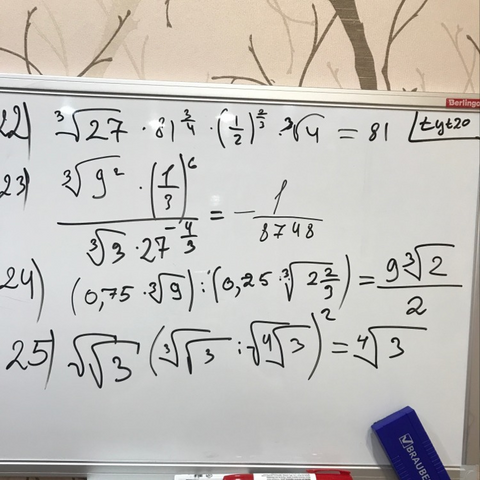 Berlingo
22) ∛27 · 81^(3/4) · (1/2)^(2/3) · ∛4 = 81 tyt20
23) (∛(9²) · (1/3)^6) / (∛3 · 27^(-4/3)) = - 1/8748
24) (0,75 · ∛9) : (0,25 · ∛(2 2/3)) = 9∛2 / 2
25) √√3 (∛√3 : √∜3)² = ∜3
BRAUBE